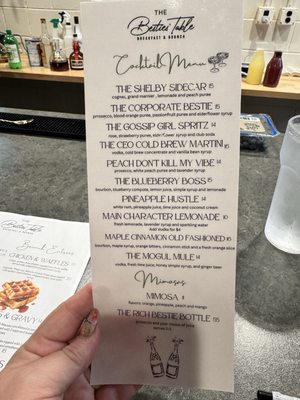 THE
Besties Table
BREAKFAST & BRUNCH
Cocktail Menu
THE SHELBY SIDECAR 15
cognac, grand marnier, lemonade and peach puree
THE CORPORATE BESTIE 15
prosecco, blood orange puree, passionfruit puree and elderflower syrup
THE GOSSIP GIRL SPRITZ 14
rose, strawberry puree, elderflower syrup and club soda
THE CEO COLD BREW MARTINI 16
vodka, cold brew concentrate and vanilla bean syrup
PEACH DON'T KILL MY VIBE 14
prosecco, white peach puree and lavender syrup
THE BLUEBERRY BOSS 15
bourbon, blueberry compote, lemon juice, simple syrup and lemonade
PINEAPPLE HUSTLE 14
white rum, pineapple juice, lime juice and coconut cream
MAIN CHARACTER LEMONADE 10
fresh lemonade, lavender syrup and sparkling water
Add vodka for $4
MAPLE CINNAMON OLD FASHIONED 16
bourbon, maple syrup, orange bitters, cinnamon stick and a fresh orange slice
THE MOGUL MULE 14
vodka, fresh lime juice, honey simple syrup, and ginger beer
Mimosas
MIMOSA 11
flavors: orange, pineapple, peach and mango
THE RICH BESTIE BOTTLE
prosecco and your choice of juice
serves 2-3
THE
Besties Table
Brunch Entrees
CHICKEN & WAFFLES
& GRAVY